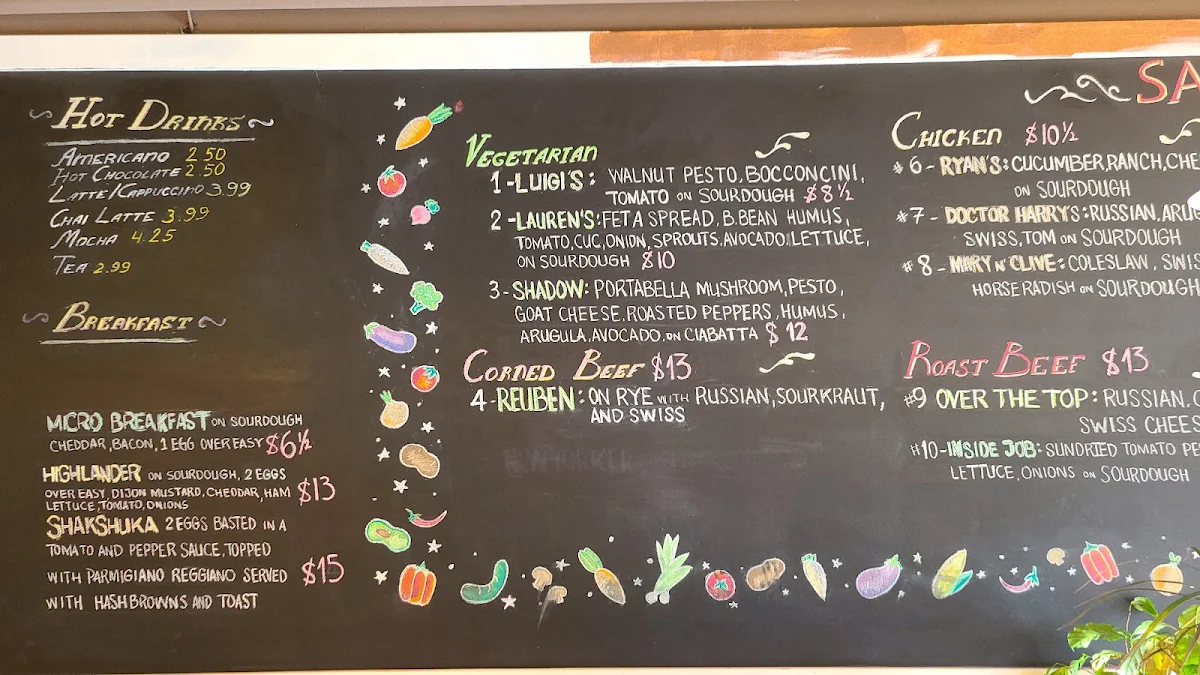 Hot Drinks
Americano 2.50
Hot Chocolate 2.50
Latte/Cappuccino 3.99
Chai Latte 3.99
Mocha 4.25
Tea 2.99
Breakfast
MICRO BREAKFAST ON SOURDOUGH
CHEDDAR, BACON, 1 EGG OVER EASY $6½
HIGHLANDER ON SOURDOUGH, 2 EGGS
OVER EASY, DIJON MUSTARD, CHEDDAR, HAM $13
LETTUCE, TOMATO, ONIONS
SHAKSHUKA 2 EGGS BASTED IN A
TOMATO AND PEPPER SAUCE, TOPPED
WITH PARMIGIANO REGGIANO SERVED $15
WITH HASHBROWNS AND TOAST
Vegetarian
1-LUIGI'S: WALNUT PESTO, BOCCONCINI,
TOMATO ON SOURDOUGH $8½
2-LAUREN'S: FETA SPREAD, B.BEAN HUMUS,
TOMATO, CUC, ONION, SPROUTS, AVOCADO, LETTUCE,
ON SOURDOUGH $10
3-SHADOW: PORTABELLA MUSHROOM, PESTO,
GOAT CHEESE, ROASTED PEPPERS, HUMUS,
ARUGULA, AVOCADO, ON CIABATTA $12
Corned Beef $13
4-REUBEN: ON RYE WITH RUSSIAN, SOURKRAUT,
AND SWISS
SA
Chicken $10½
#6-RYAN'S: CUCUMBER, RANCH, CHE
ON SOURDOUGH
#7-DOCTOR HARRY'S: RUSSIAN, ARU
SWISS, TOM ON SOURDOUGH
#8-MARY N' CLIVE: COLESLAW, SWIS
HORSERADISH ON SOURDOUGH
Roast Beef $13
#9 OVER THE TOP: RUSSIAN,
SWISS CHEES
#10-INSIDE JOB: SUNDRIED TOMATO PE
LETTUCE, ONIONS ON SOURDOUGH